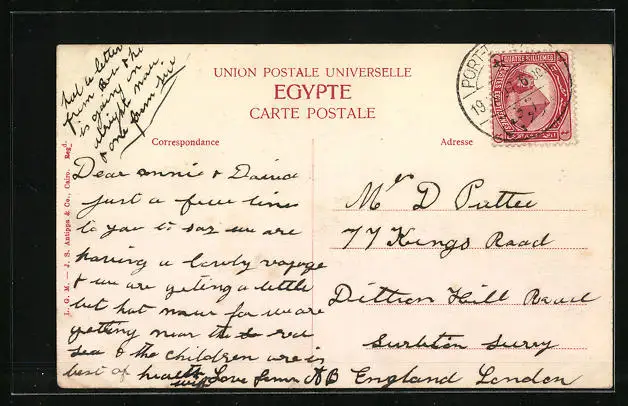 had a letter
from Bou & he
is going on
alright now
& one from sue
UNION POSTALE UNIVERSELLE
EGYPTE
CARTE POSTALE
Correspondance
Adresse
L. G. M. — J. S. Antippa & Co., Cairo. Regd.
PORT-T
19
QUATRE MILLIEMES
Dear annie & David
just a few lines
to you to say we are
having a lovely voyage
& we are geting a little
bit hot now for we are
getting near the red
sea & the children are in
best of health
with Love from AB
Mr D Puttee
77 Kings Road
Dittion Hill Road
Surbiton Surry
England London